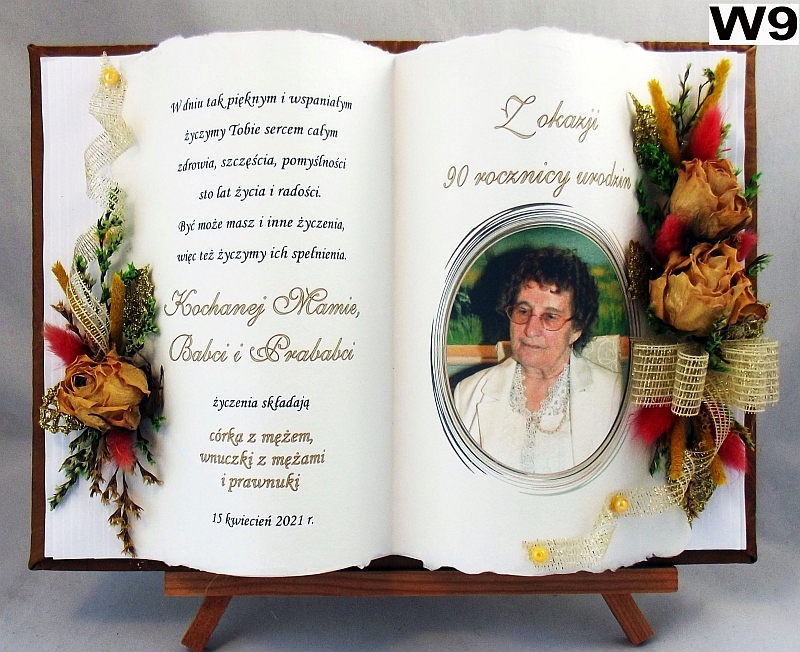 W dniu tak pięknym i wspaniałym
życzymy Tobie sercem całym
zdrowia, szczęścia, pomyślności
sto lat życia i radości.
Być może masz i inne życzenia,
więc też życzymy ich spełnienia.
Kochanej Mamie,
Babci i Prababci
życzenia składają
córka z mężem,
wnuczki z mężami
i prawnuki
15 kwiecień 2021 r.
Z okazji
90 rocznicy urodzin
W9